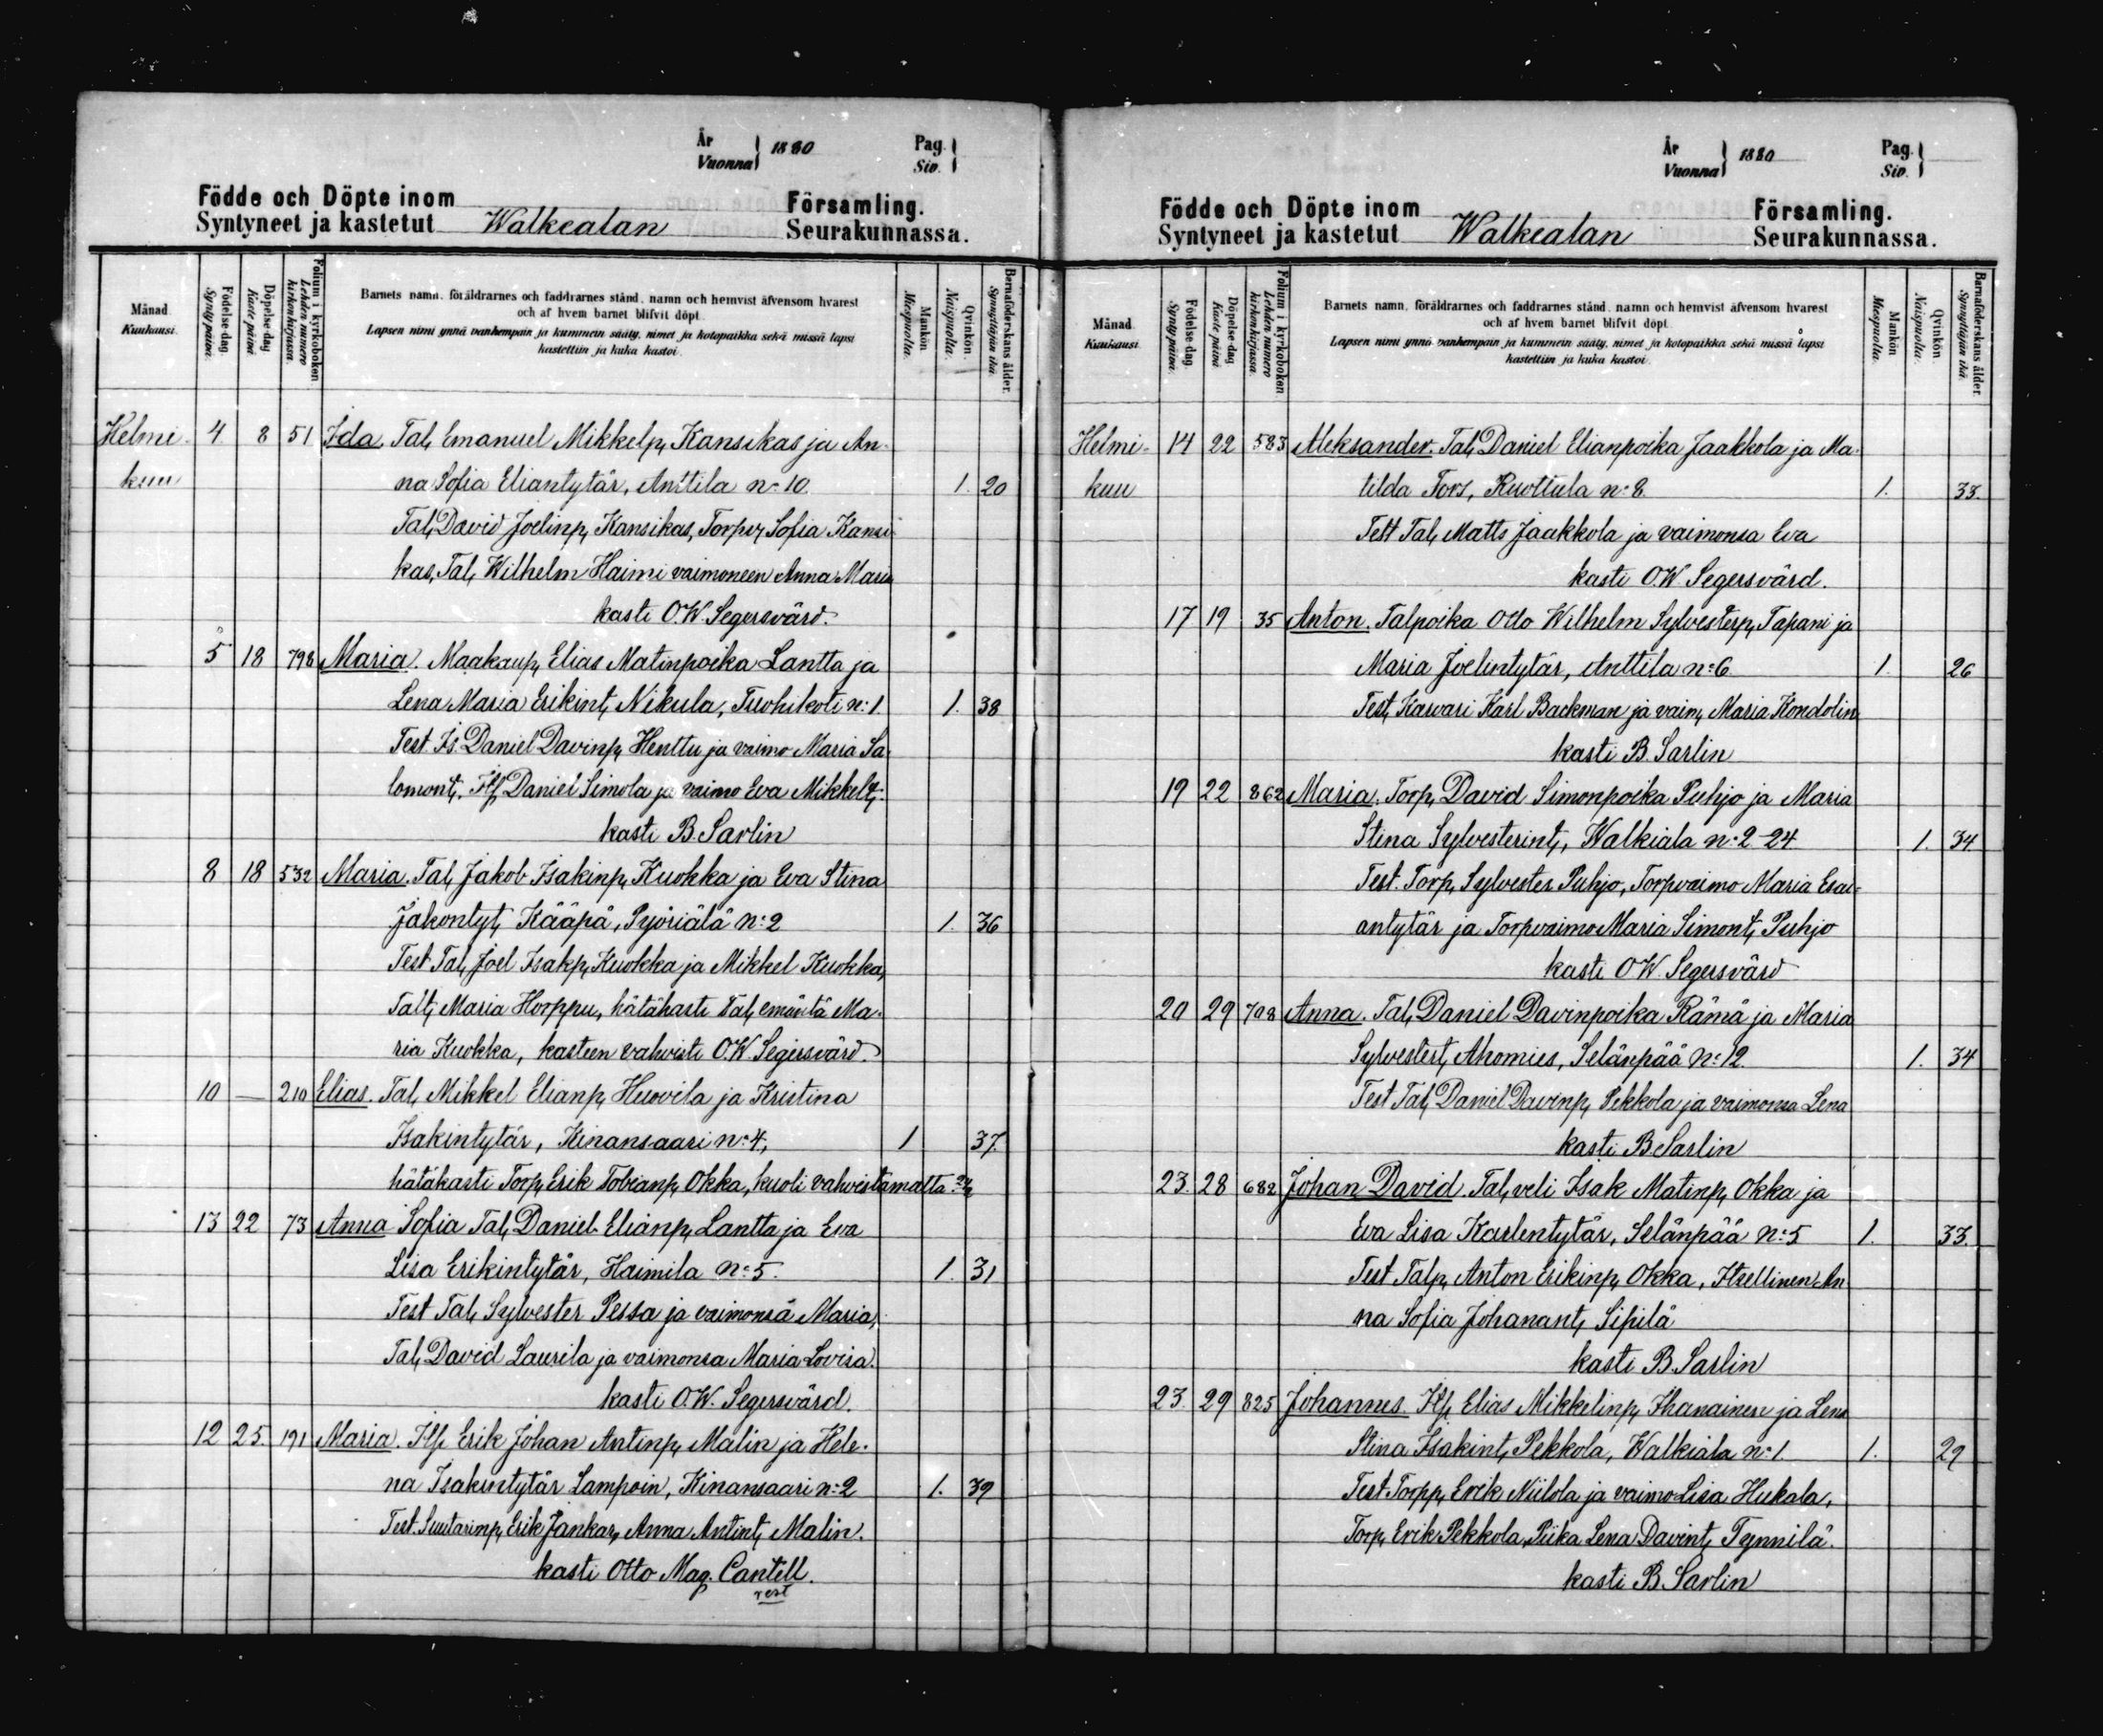 År
Vuonna } 1880
Pag.
Siv. }
Födde och Döpte inom
Syntyneet ja kastetut Walkealan Församling.
Seurakunnassa.
Månad. Kuukausi.
Födelse-dag. Syntypäivä.
Döpelse-dag Kaste päivä.
Folium i kyrkoboken Lehden numero kirkonkirjassa.
Barnets namn, föräldrarnes och faddrarnes stånd, namn och hemvist äfvensom hvarest
och af hvem barnet blifvit döpt.
Lapsen nimi ynnä vanhempain ja kummein sääty, nimet ja kotopaikka sekä missä lapsi
kastettiin ja kuka kastoi.
Mankön Miespuolta.
Qvinkön. Naispuolta.
Barnaföderskans ålder. Synnyttäjän ikä.
Helmi- 4 8 51 Ida, Tal, Emanuel Mikkelp, Kansikas ja An-
kuu na Sofia Eliantytär, Anttila n:10. 1. 20
Tal, David Joelinp, Kansikas, Torpv, Sofia Kansi-
kas, Tal, Wilhelm Haimi vaimoneen Anna Maria
kasti O.W. Segersvärd.
5 18 798 Maria. Maakaup, Elias Matinpoika Lantta ja
Lena Maria Erikint, Nikula, Tuohikoti n:1. 1. 38
Test Is. Daniel Davinp, Henttu ja vaimo Maria Sa-
lomont, Daniel Simola ja vaimo Eva Mikkelt,
kasti B. Sarlin
8 18 532 Maria. Tal, Jakob Isakinp, Kuokka ja Eva Stina
Jakontyt, Kääpä, Pyöriälä n:2 1. 36
Test Tal, Joel Isakp, Kuokka ja Mikkel Kuokka,
Talt, Maria Horppu, hätäkasti Tal, emäntä Ma-
ria Kuokka, kasteen vahvisti O.W. Segersvärd.
10 — 210 Elias. Tal, Mikkel Elianp, Huovila ja Kristina
Isakintytär, Kinansaari n:4, 1 37.
hätäkasti Torp, Erik Tobianp, Okka, kuoli vahvistamatta
13 22 73 Anna Sofia Tal, Daniel Elianp, Lantta ja Eva
Lisa Erikintytär, Haimila n:5. 1. 31
Test Tal, Sylvester Pessa ja vaimonsa Maria,
Tal, David Laurila ja vaimonsa Maria Lovisa.
kasti O.W. Segersvärd.
12 25. 191 Maria. Erik Johan Antinp, Malin ja Hele-
na Isakintytär Lampoin, Kinansaari n:2 1. 39
Test. Suutarinp, Erik Jankar, Anna Antint, Malin.
kasti Otto Mag. Cantell.
År
Vuonna } 1880
Pag.
Siv. }
Födde och Döpte inom
Syntyneet ja kastetut Walkealan Församling.
Seurakunnassa.
Månad. Kuukausi.
Födelse-dag. Syntypäivä.
Döpelse-dag Kaste päivä.
Folium i kyrkoboken Lehden numero kirkonkirjassa.
Barnets namn, föräldrarnes och faddrarnes stånd, namn och hemvist äfvensom hvarest
och af hvem barnet blifvit döpt.
Lapsen nimi ynnä vanhempain ja kummein sääty, nimet ja kotopaikka sekä missä lapsi
kastettiin ja kuka kastoi.
Mankön Miespuolta.
Qvinkön. Naispuolta.
Barnaföderskans ålder. Synnyttäjän ikä.
Helmi- 14 22 583 Aleksander. Tal, Daniel Elianpoika Jaakkola ja Ma-
kuu tilda Tors, Kuottula n:8. 1. 33.
Test Tal, Matts Jaakkola ja vaimonsa Eva
kasti O.W. Segersvärd.
17 19 35 Anton. Talpoika Otto Wilhelm Sylvesterp, Tapani ja
Maria Joelintytär, Anttila n:6. 1. 26
Test, Karvari Karl Backman ja vaim, Maria Kondolin
kasti B. Sarlin
19 22 862 Maria. Torp, David Simonpoika Puhjo ja Maria
Stina Sylvesterint, Walkiala n:2-24 1. 34.
Test. Torp, Sylvester Puhjo, Torpvaimo Maria Esai-
antytär ja Torpvaimo Maria Simont, Puhjo
kasti O.W. Segersvärd
20 29 708 Anna. Tal, Daniel Davinpoika Rämä ja Maria
Sylvestert, Ahomies, Selänpää N:12. 1. 34
Test Tal, Daniel Davinp, Pekkola ja vaimonsa Lena
kasti B. Sarlin
23. 28 682 Johan David. Tal, veli Isak Matinp, Okka ja
Eva Lisa Karlentytär, Selänpää N:5 1. 33.
Test Talp, Anton Erikinp, Okka, Itsellinen An-
na Sofia Johanant, Sipilä
kasti B. Sarlin
23. 29 825 Johannes. Elias Mikkelinp, Ihanainen ja Lena
Stina Isakint, Pekkola, Walkiala n:1. 1. 29
Test Torpp, Erik Niilola ja vaimo Lisa Hukala,
Torp, Erik Pekkola, Piika Lena Davint, Tynnilä.
kasti B. Sarlin